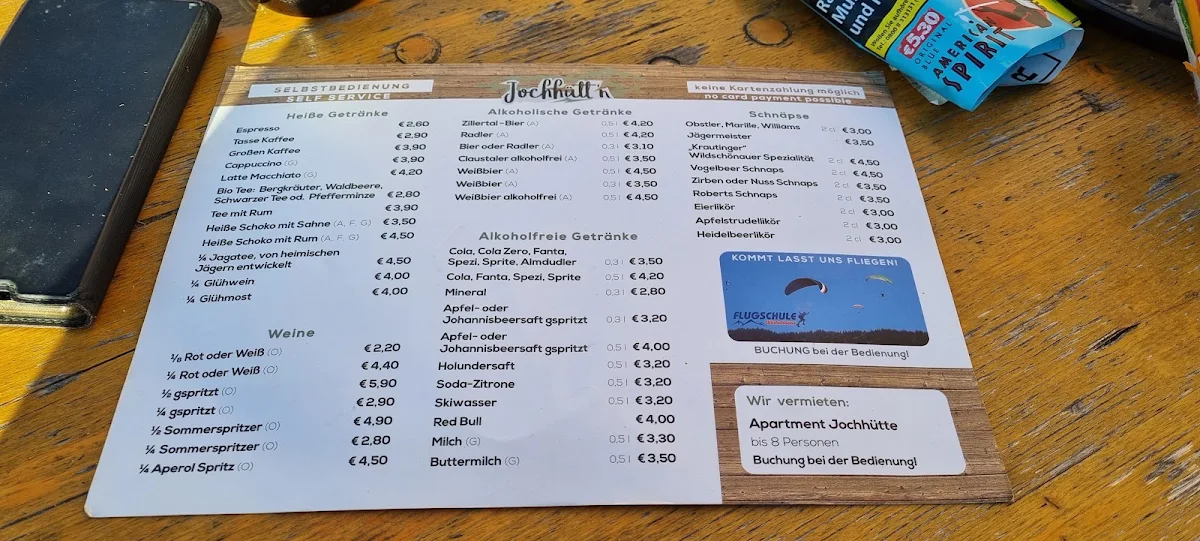 SELBSTBEDIENUNG
SELF SERVICE
Jochhütt'n
keine Kartenzahlung möglich
no card payment possible
Heiße Getränke
Espresso €2,60
Tasse Kaffee €2,90
Großen Kaffee €3,90
Cappuccino (G) €3,90
Latte Macchiato (G) €4,20
Bio Tee: Bergkräuter, Waldbeere,
Schwarzer Tee od. Pfefferminze €2,80
Tee mit Rum €3,90
Heiße Schoko mit Sahne (A, F, G) €3,50
Heiße Schoko mit Rum (A, F, G) €4,50
¼ Jagatee, von heimischen
Jägern entwickelt €4,50
¼ Glühwein €4,00
¼ Glühmost €4,00
Weine
⅛ Rot oder Weiß (O) €2,20
¼ Rot oder Weiß (O) €4,40
½ gspritzt (O) €5,90
¼ gspritzt (O) €2,90
½ Sommerspritzer (O) €4,90
¼ Sommerspritzer (O) €2,80
¼ Aperol Spritz (O) €4,50
Alkoholische Getränke
Zillertal-Bier (A) 0,5 l €4,20
Radler (A) 0,5 l €4,20
Bier oder Radler (A) 0,3 l €3,10
Claustaler alkoholfrei (A) 0,5 l €3,50
Weißbier (A) 0,5 l €4,50
Weißbier (A) 0,3 l €3,50
Weißbier alkoholfrei (A) 0,5 l €4,50
Alkoholfreie Getränke
Cola, Cola Zero, Fanta,
Spezi, Sprite, Almdudler 0,3 l €3,50
Cola, Fanta, Spezi, Sprite 0,5 l €4,20
Mineral 0,3 l €2,80
Apfel- oder
Johannisbeersaft gspritzt 0,3 l €3,20
Apfel- oder
Johannisbeersaft gspritzt 0,5 l €4,00
Holundersaft 0,5 l €3,20
Soda-Zitrone 0,5 l €3,20
Skiwasser 0,5 l €3,20
Red Bull €4,00
Milch (G) 0,5 l €3,30
Buttermilch (G) 0,5 l €3,50
Schnäpse
Obstler, Marille, Williams 2 cl €3,00
Jägermeister €3,50
„Krautinger"
Wildschönauer Spezialität 2 cl €4,50
Vogelbeer Schnaps 2 cl €4,50
Zirben oder Nuss Schnaps 2 cl €3,50
Roberts Schnaps 2 cl €3,50
Eierlikör 2 cl €3,00
Apfelstrudellikör 2 cl €3,00
Heidelbeerlikör 2 cl €3,00
KOMMT LASST UNS FLIEGEN!
FLUGSCHULE
BUCHUNG bei der Bedienung!
Wir vermieten:
Apartment Jochhütte
bis 8 Personen
Buchung bei der Bedienung!
und
€5,30
ORIGINAL
BLUE
AMERICAN
SPIRIT